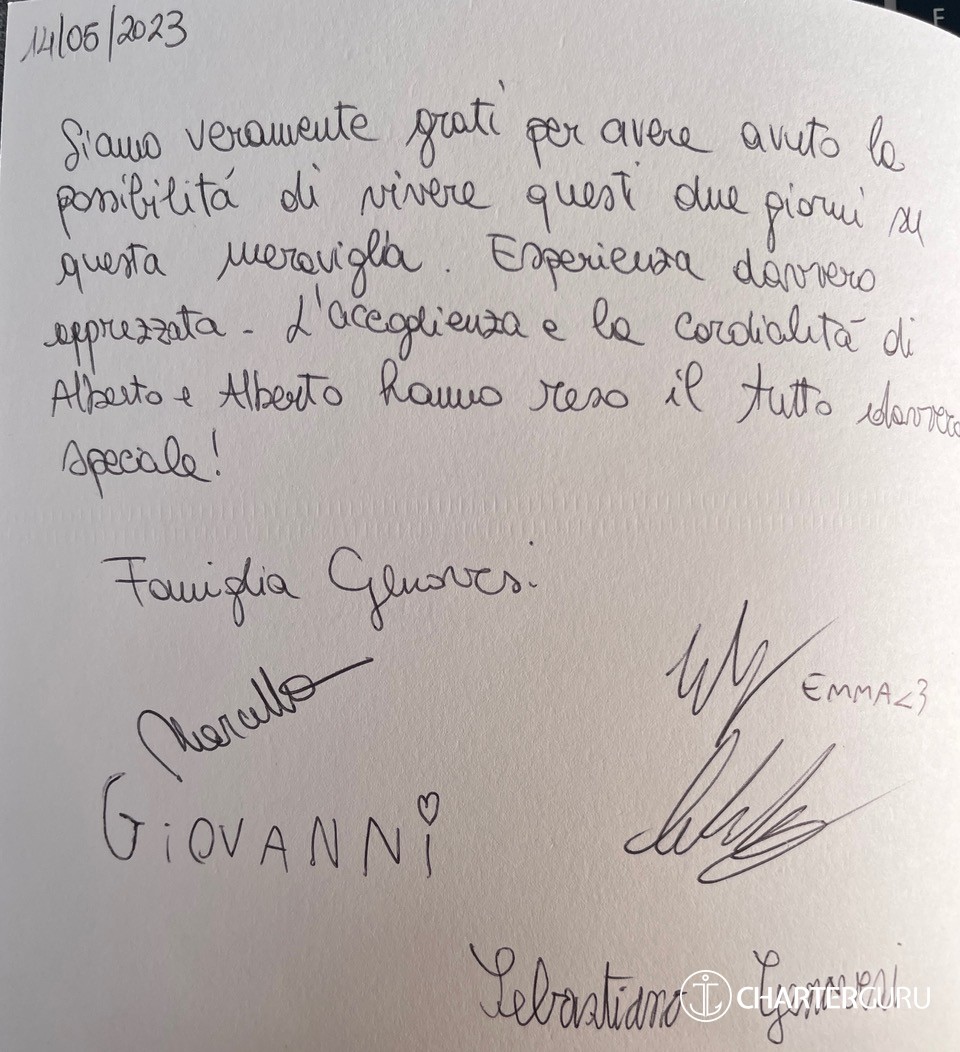 14/05/2023
Siamo veramente grati per avere avuto la
possibilitá di vivere questi due giorni su
questa meraviglia. Esperienza davvero
apprezzata - L'accoglienza e la cordialitá di
Alberto e Alberto hanno reso il tutto davvero
speciale!
Famiglia Genovesi
EMMA<3
GiOVANNi
Sebastiano Genovesi
CHARTERGURU
F